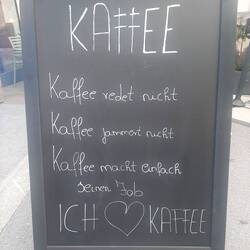 KAFFEE
Kaffee redet nicht
Kaffee jammert nicht
Kaffee macht einfach
seinen Job
ICH ♡ KAFFEE